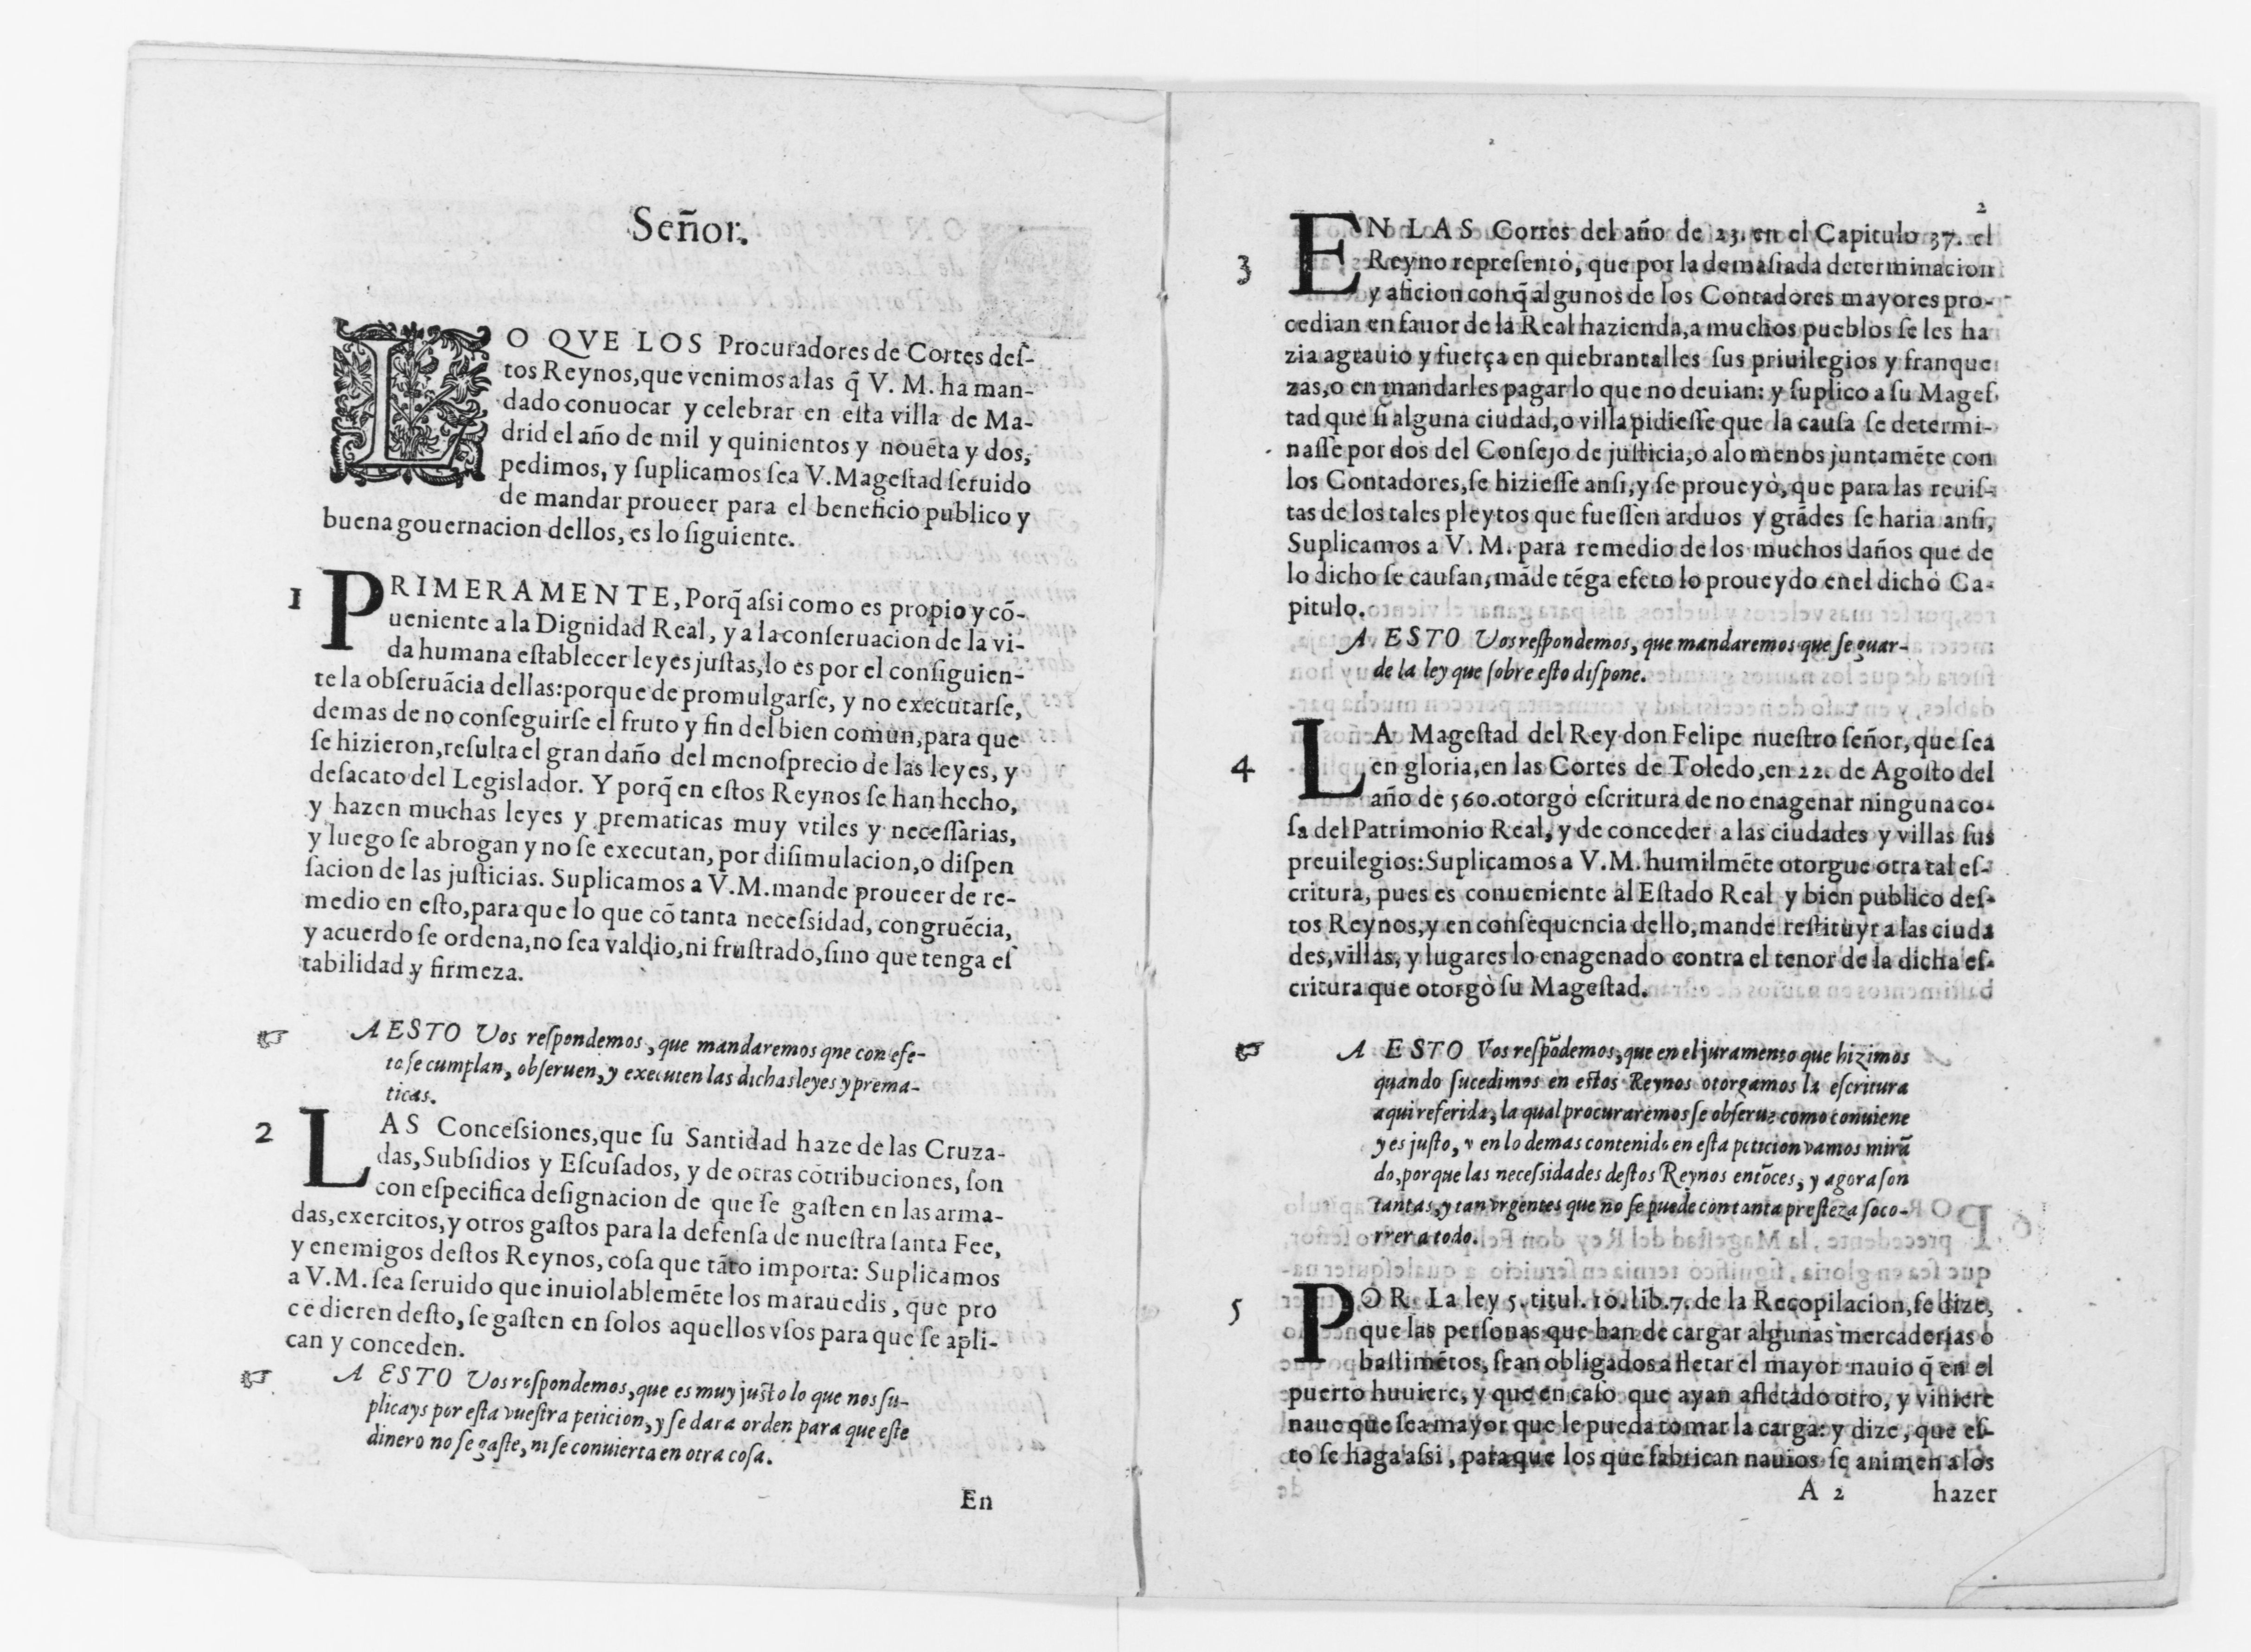 Señor.
LO QVE LOS Procuradores de Cortes deſ-
tos Reynos,que venimos a las q̃ V. M. ha man-
dado conuocar y celebrar en eſta villa de Ma-
drid el año de mil y quinientos y nouẽta y dos,
pedimos, y ſuplicamos ſea V. Mageſtad ſeruido
de mandar proueer para el beneficio publico y
buena gouernacion dellos, es lo ſiguiente.
1 PRIMERAMENTE, Porq̃ aſsi como es propio y cõ-
ueniente a la Dignidad Real, y a la conſeruacion de la vi-
da humana eſtablecer leyes juſtas, lo es por el conſiguien-
te la obſeruãcia dellas: porque de promulgarſe, y no executarſe,
demas de no conſeguirſe el fruto y fin del bien comun, para que
ſe hizieron, reſulta el gran daño del menoſprecio de las leyes, y
deſacato del Legislador. Y porq̃ en eſtos Reynos ſe han hecho,
y hazen muchas leyes y prematicas muy vtiles y neceſſarias,
y luego ſe abrogan y no ſe executan, por diſimulacion, o diſpen
ſacion de las juſticias. Suplicamos a V. M. mande proueer de re-
medio en eſto, para que lo que cõ tanta neceſsidad, congruẽcia,
y acuerdo ſe ordena, no ſea valdio, ni fruſtrado, ſino que tenga eſ
tabilidad y firmeza.
☞ A ESTO Vos reſpondemos, que mandaremos qne con efe-
to ſe cumplan, obſeruen, y executen las dichas leyes y prema-
ticas.
2 LAS Conceſsiones, que ſu Santidad haze de las Cruza-
das, Subſidios y Eſcuſados, y de otras cõtribuciones, ſon
con eſpecifica deſignacion de que ſe gaſten en las arma-
das, exercitos, y otros gaſtos para la defenſa de nueſtra ſanta Fee,
y enemigos deſtos Reynos, coſa que tãto importa: Suplicamos
a V. M. ſea ſeruido que inuiolablemẽte los marauedis, que pro
cedieren deſto, ſe gaſten en ſolos aquellos vſos para que ſe apli-
can y conceden.
☞ A ESTO Vos reſpondemos, que es muy juſto lo que nos ſu-
plicays por eſta vueſtra peticion, y ſe dara orden para que eſte
dinero no ſe gaſte, ni ſe conuierta en otra coſa.
En
2
3 EN LAS Cortes del año de 23. en el Capitulo 37. el
Reyno repreſentò, que por la demaſiada determinacion
y aficion con q̃ algunos de los Contadores mayores pro-
cedian en fauor de la Real hazienda, a muchos pueblos ſe les ha
zia agrauio y fuerça en quebrantalles ſus priuilegios y franque
zas, o en mandarles pagar lo que no deuian: y ſuplico a ſu Mageſ
tad que ſi alguna ciudad, o villa pidieſſe que la cauſa ſe determi-
naſſe por dos del Conſejo de juſticia, o alomenos juntamẽte con
los Contadores, ſe hizieſſe anſi, y ſe proueyò, que para las reuiſ-
tas de los tales pleytos que fueſſen arduos y grãdes ſe haria anſi,
Suplicamos a V. M. para remedio de los muchos daños que de
lo dicho ſe cauſan, mãde tẽga efeto lo proueydo enel dicho Ca-
pitulo.
A ESTO Vos reſpondemos, que mandaremos que ſe guar-
de la ley que ſobre eſto diſpone.
4 LA Mageſtad del Rey don Felipe nueſtro ſeñor, que ſea
en gloria, en las Cortes de Toledo, en 22. de Agoſto del
año de 560. otorgò eſcritura de no enagenar ninguna co-
ſa del Patrimonio Real, y de conceder a las ciudades y villas ſus
preuilegios: Suplicamos a V. M. humilmẽte otorgue otra tal eſ-
critura, pues es conueniente al Eſtado Real y bien publico deſ-
tos Reynos, y en conſequencia dello, mande reſtituyr a las ciuda
des, villas, y lugares lo enagenado contra el tenor de la dicha eſ-
critura que otorgò ſu Mageſtad.
☞ A ESTO Vos reſpõdemos, que en el juramento que hizimos
quando ſucedimos en eſtos Reynos otorgamos la eſcritura
aqui referida, la qual procuraremos ſe obſerue como conuiene
y es juſto, y en lo demas contenido en eſta peticion vamos mirã
do, porque las neceſsidades deſtos Reynos entõces, y agora ſon
tantas, y tan vrgentes que no ſe puede con tanta preſteza ſoco-
rrer a todo.
5 POR La ley 5. titul. 10. lib. 7. de la Recopilacion, ſe dize,
que las perſonas que han de cargar algunas mercaderias o
baſtimẽtos, ſean obligados a fletar el mayor nauio q̃ en el
puerto huuiere, y que en caſo que ayan afletado otro, y viniere
naue que ſea mayor que le pueda tomar la carga: y dize, que eſ-
to ſe haga aſsi, para que los que fabrican nauios ſe animen a los
A 2 hazer